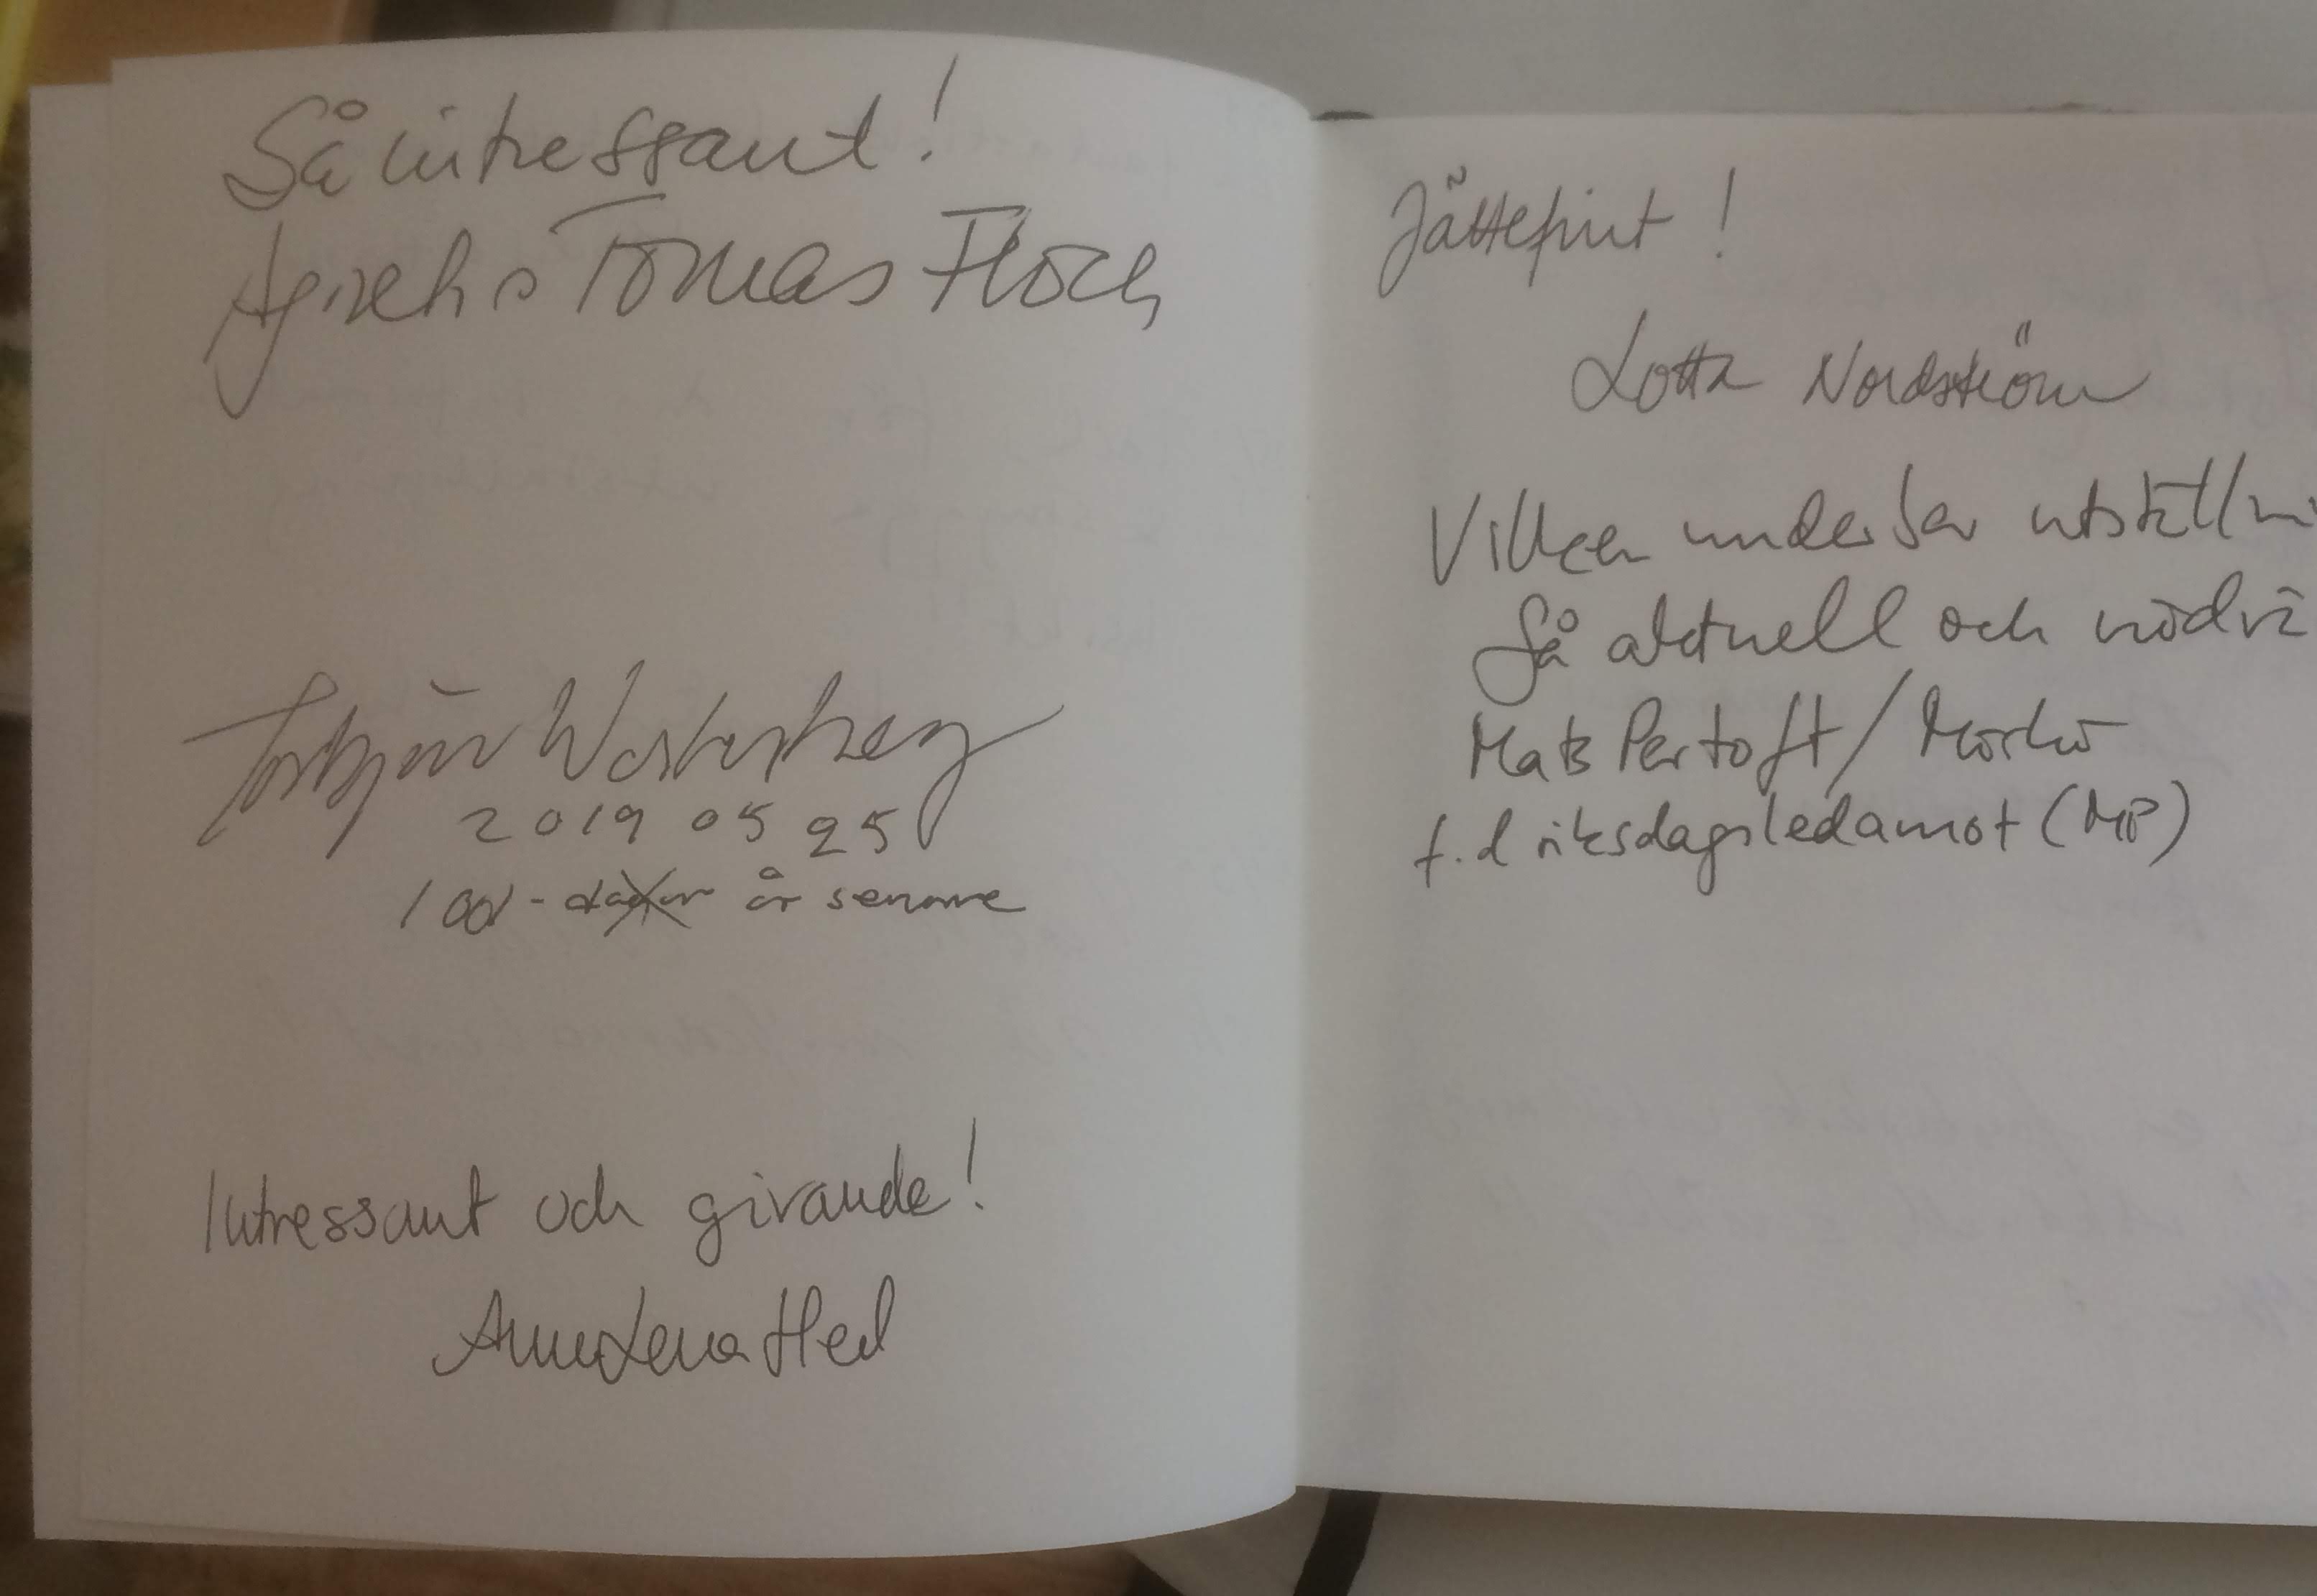 Så intressant!
Tomas Floch
Torbjörn Westerberg
2019 05 25
100 - år senare
Intressant och givande!
AnnaLena Hed
Jättefint!
Lotta Nordström
Vilken underbar utställni
Så aktuell och nödvä
Mats Pertoft/Mörkö
f.d riksdagsledamot (MP)